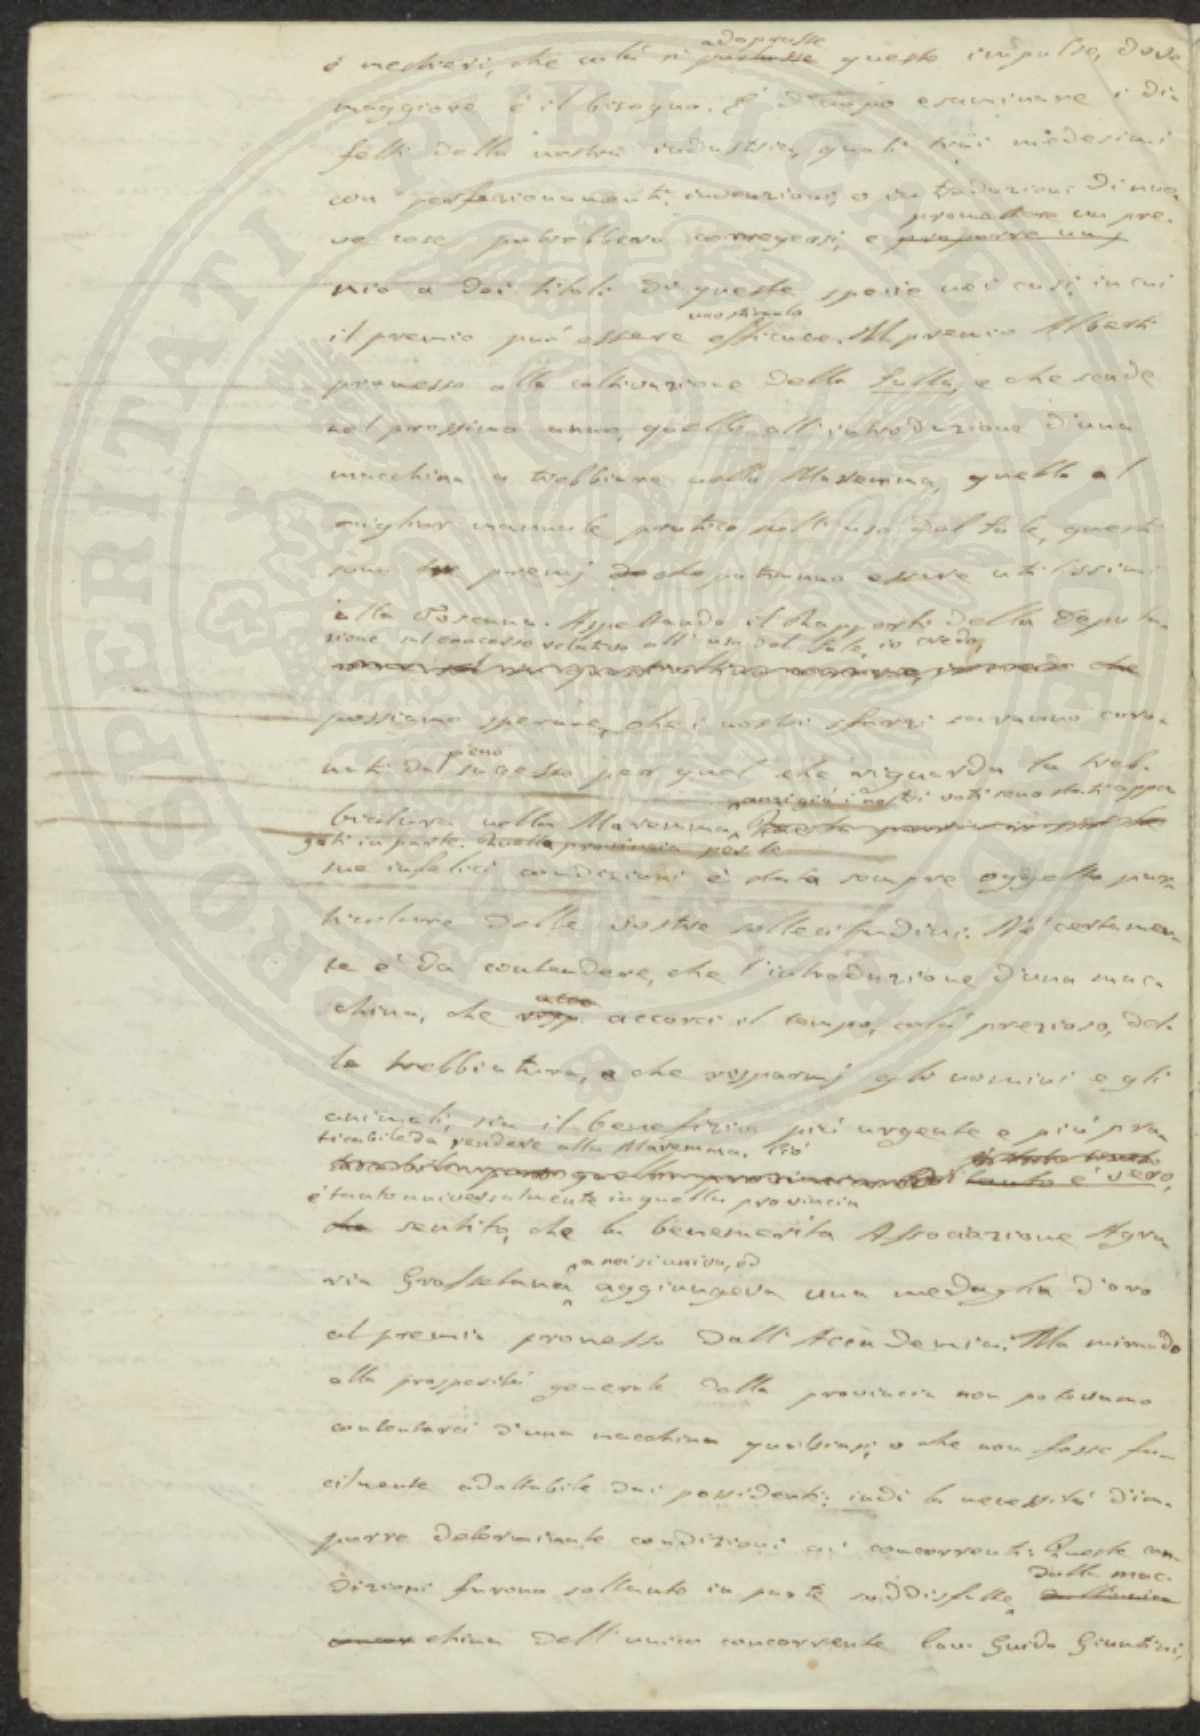 è mestieri, che colà si portasse adoprasse questo impulso, dove
maggiore è il bisogno. È d'uopo esaminare i di-
fetti della nostra industria, quali trai medesimi
con perfezionamenti, invenzioni, o introduzioni di nuo-
ve cose potrebbero corregersi, e proporre un promettere un pre-
mio a dei titoli di queste specie nei casi, in cui
il premio può essere uno stimolo efficace. Il premio Alberti
promesso alla coltivazione della Sulla, e che scade
nel prossimo anno, quello all'introduzione d'una
macchina a trebbiare nella Maremma, quello al
miglior manuale pratico sull'uso del Sale, questi
sono tre premj che potranno essere utilissimi
alla Toscana. Aspettando il Rapporto della Deputa-
zione sul concorso relativo all'uso del Sale, io credo,
che
possiamo sperare, che i nostri sforzi saranno coro-
nati dal pieno sucesso per quel che riguarda la treb-
biatura nella Maremma, anzi già i nostri voti sono stati appa-
gati in parte. Quella provincia per le
sue infelici condizioni è stata sempre oggetto par-
ticolare delle vostre sollecitudini. Nè certamen-
te è da contendere, che l'introduzione d'una mac-
china, che accorci il tempo, colà prezioso, del-
la trebbiatura, e che risparmj gli uomini e gli
animali, sia il benefizio più urgente e più pra-
ticabile da rendere alla Maremma. Ciò
tanto è vero,
è tanto universalmente in quella provincia
che sentito, che la benemerita Associazione Agra-
ria Grossetana a noi si univa, ed aggiungeva una medaglia d'oro
al premio promesso dall'Accademia. Ma mirando
alla prosperità generale della provincia non potevamo
contentarci d'una macchina qualsiasi, o che non fosse fa-
cilmente adattabile dai possidenti; indi la necessità d'im-
porre determinate condizioni ai concorrenti. Queste con-
dizioni furono soltanto in parte soddisfatte dalla mac-
china dell'unico concorrente Cav. Guido Giuntini,
PROSPERITATI PUBLICAE